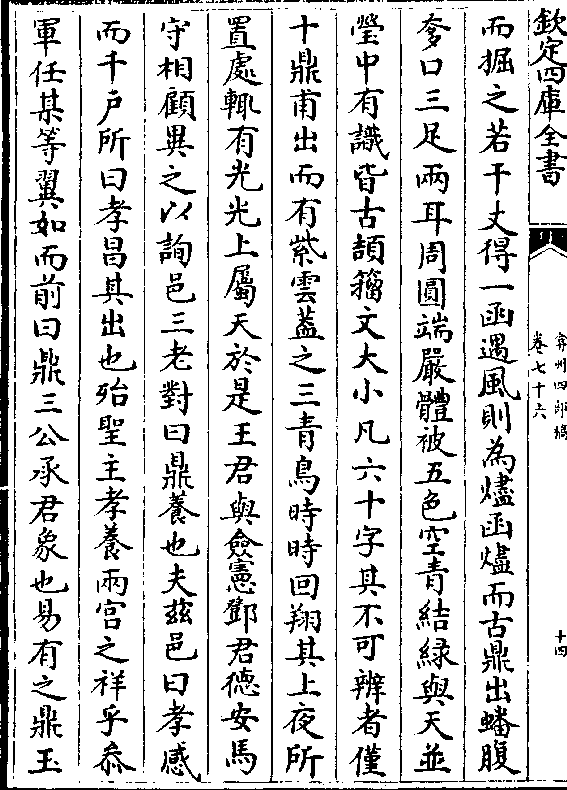 欽定四庫全書
弇州四部稿
卷七十六
十四
而掘之若干丈得一函遇風則為燼函燼而古鼎出蟠腹
奓口三足兩耳周圓端嚴體被五色空青結綠與天並
瑩中有識皆古頡籀文大小凡六十字其不可辨者僅
十鼎甫出而有紫雲葢之三青鳥時時回翔其上夜所
置處輒有光光上屬天於是王君與僉憲鄧君德安馬
守相顧異之以詢邑三老對曰鼎養也夫兹邑曰孝感
而千戶所曰孝昌其出也殆聖主孝養兩宮之祥乎叅
軍任某等翼如而前曰鼎三公承君象也易有之鼎玉